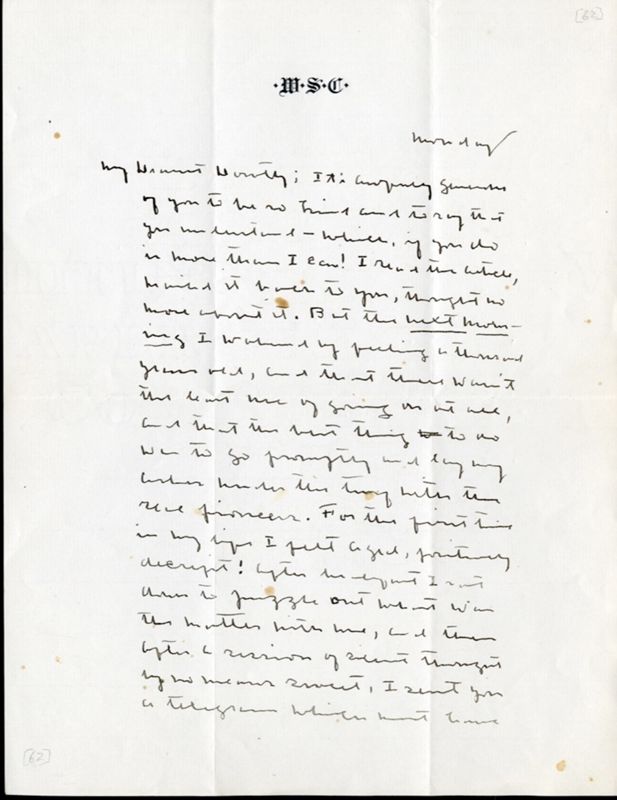 [62]
·W·S·C·
Monday
My Dearest Dorothy; It's awfully generous
of you to be so kind and to say that
you understand – which, if you do
is more than I can! I read the article,
handed it back to you, thought no
more about it. But the next morn-
ing I wakened by feeling a thousand
years old, and that there wasn't
the least use of going on at all,
and that the best thing to do
was to go promptly and lay my
ashes under the tray with the
real pioneers. For the first time
in my life I felt aged, positively
decrepit! After breakfast I sat
down to puzzle out what was
the matter with me, and then
after a session of silent thought
by no means sweet, I sent you
a telegram which must have
[62]